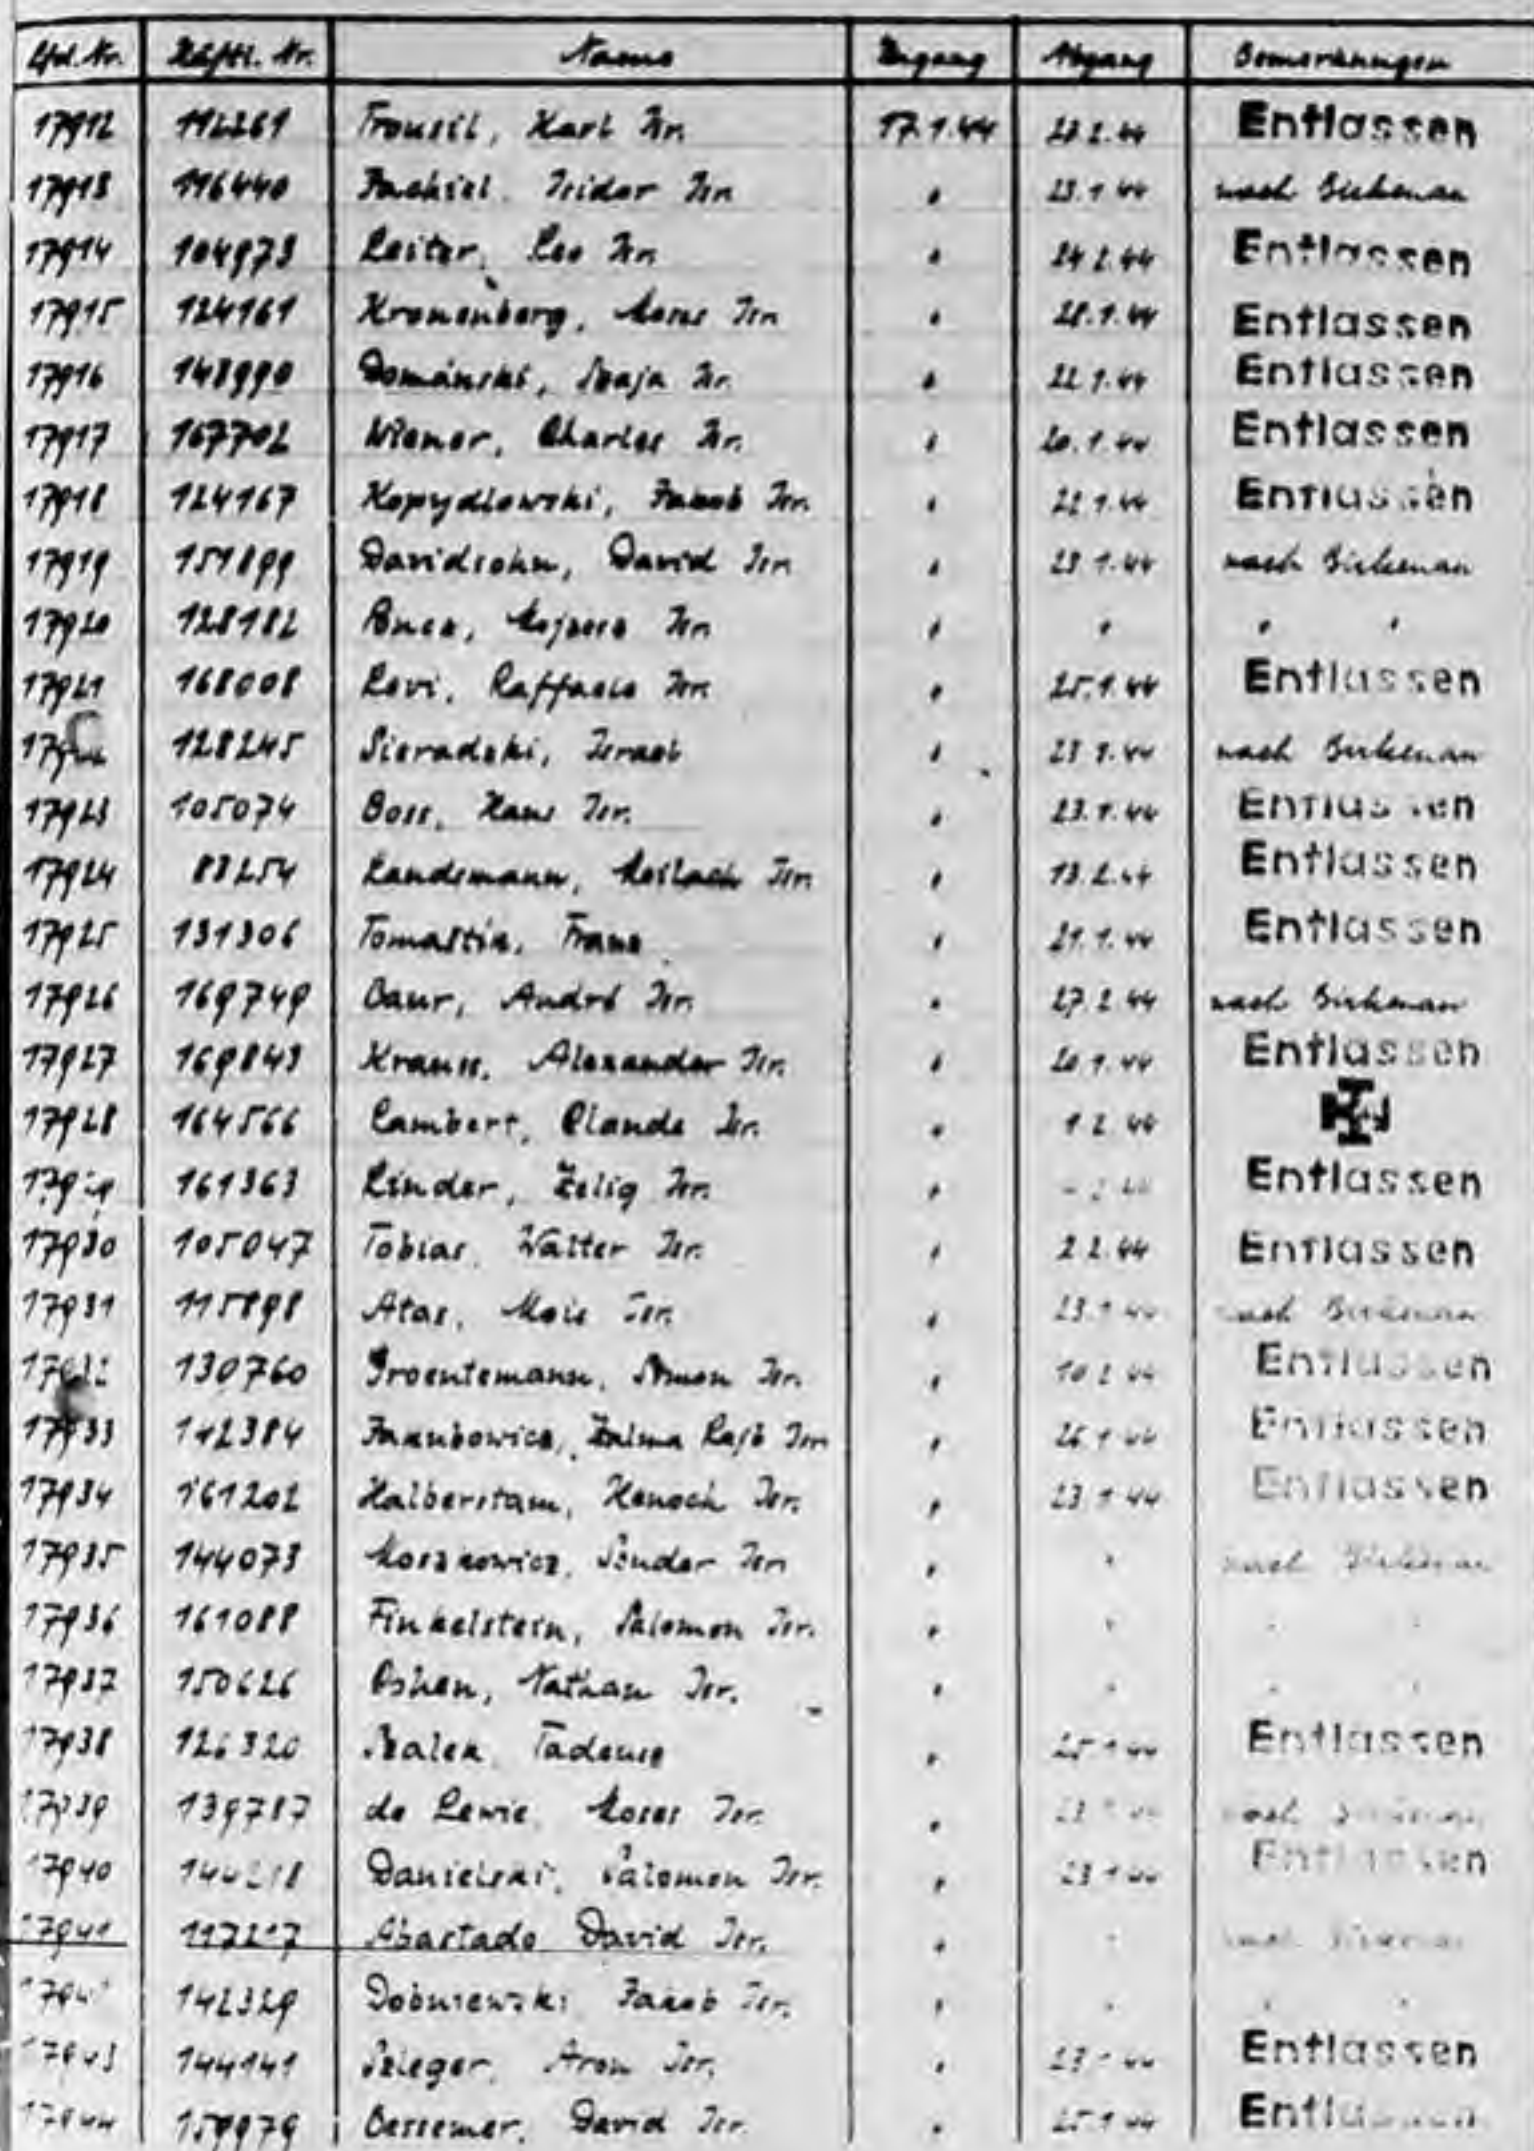 Lfd. Nr. Häftl. Nr. Name Zugang Abgang Bemerkungen
17912 112261 Trousil, Karl Isr. 17.1.44 23.2.44 Entlassen
17913 116440 Isidor Isr. " 23.1.44 nach Birkenau
17914 104973 Leiter, Leo Isr. " 24.2.44 Entlassen
17915 124161 Kronenberg, Moses Isr. " 28.1.44 Entlassen
17916 143990 Dománski, Szaja Isr. " 22.1.44 Entlassen
17917 167702 Wiener, Charles Isr. " 20.1.44 Entlassen
17918 124167 Kopydlowski, Jakob Isr. " 22.1.44 Entlassen
17919 151899 Davidsohn, David Isr. " 23.1.44 nach Birkenau
17920 128182 Isr. " " " "
17921 168008 Levi, Raffaele Isr. " 25.1.44 Entlassen
128245 Sieradzki, Israel " 23.1.44 nach Birkenau
17923 105074 Boss, Hans Isr. " 23.1.44 Entlassen
17924 83254 Landsmann, Meilach Isr. " 13.2.44 Entlassen
17925 131306 Tomastik, Franz " 21.1.44 Entlassen
17926 169749 Baur, André Isr. " 27.2.44 nach Birkenau
17927 169843 Krauss, Alexander Isr. " 20.1.44 Entlassen
17928 164566 Lambert, Claude Isr. " 1.2.44
17929 161363 Linder, Zelig Isr. " Entlassen
17930 105047 Tobias, Walter Isr. " 2.2.44 Entlassen
17931 115898 Atas, Mois Isr. " 23.1.44 nach Birkenau
17932 130760 Groentemann, Simon Isr. " 10.2.44 Entlassen
17933 142384 Jakubowicz, Zalma Lajb Isr. " 26.1.44 Entlassen
17934 161202 Halberstam, Henoch Isr. " 23.1.44 Entlassen
17935 144073 Moszkowicz, Sender Isr. " " nach Birkenau
17936 161088 Finkelstein, Salomon Isr. " " " "
17937 150626 Nathan Isr. " " " "
17938 126320 Szalek Tadeusz " 25.1.44 Entlassen
17939 139787 de Lewie, Moses Isr. " 23.1.44 nach Birkenau
17940 Danielski, Salomon Isr. " 23.1.44 Entlassen
17941 117217 Abastado David Isr. " " nach Birkenau
142329 Jakob Isr. " " " "
17943 144141 Szleger, Aron Isr. " 23.1.44 Entlassen
17944 159979 Bessemer, David Isr. " 25.1.44 Entlassen